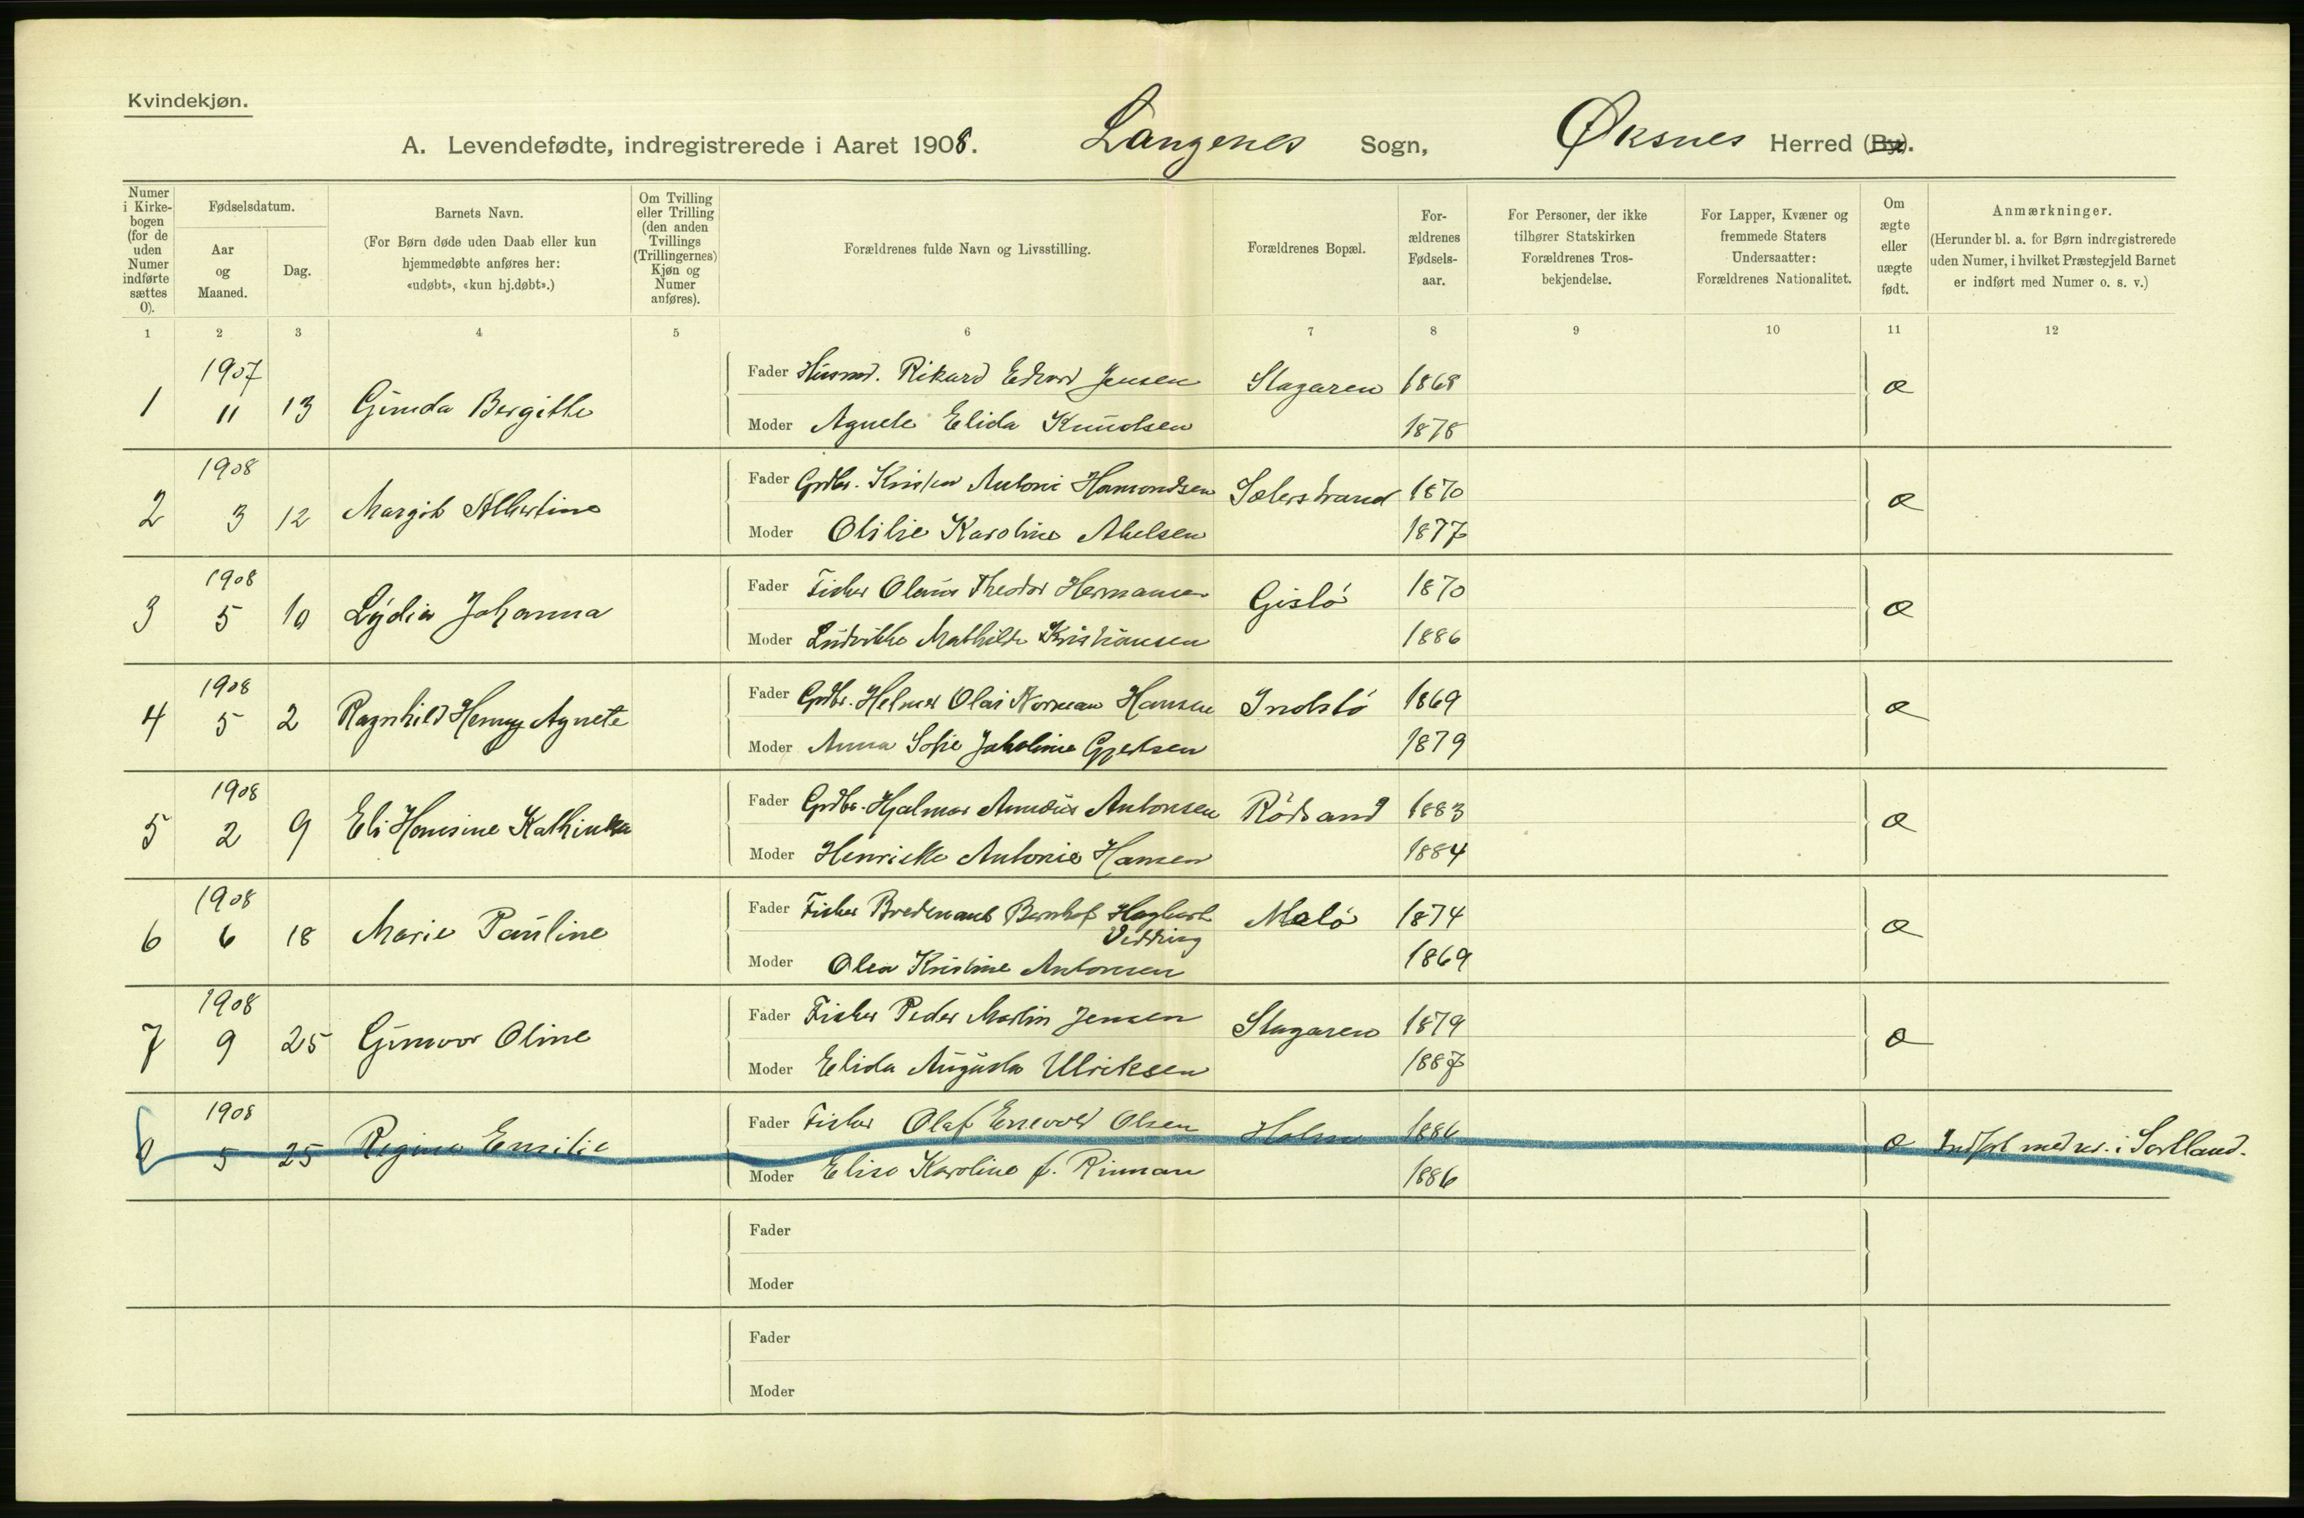 Kvindekjøn.
A. Levendefødte, indregistrerede i Aaret 1908. Langenes Sogn, Øksnes Herred (By).
Numer i Kirkebogen (for de uden Numer indførte sættes 0).
Fødselsdatum.
Aar og Maaned.
Dag.
Barnets Navn.
(For Børn døde uden Daab eller kun hjemmedøbte anføres her: «udøbt», «kun hj.døbt».)
Om Tvilling eller Trilling (den anden Tvillings (Trillingernes) Kjøn og Numer anføres).
Forældrenes fulde Navn og Livsstilling.
Forældrenes Bopæl.
Forældrenes Fødselsaar.
For Personer, der ikke tilhører Statskirken Forældrenes Trosbekjendelse.
For Lapper, Kvæner og fremmede Staters Undersaatter: Forældrenes Nationalitet.
Om ægte eller uægte født.
Anmærkninger.
(Herunder bl. a. for Børn indregistrerede uden Numer, i hvilket Præstegjeld Barnet er indført med Numer o. s. v.)
1 2 3 4 5 6 7 8 9 10 11 12
1 1907 11 13 Gunda Bergitte Fader Husmd. Rikard Edvard Jensen Slagaren 1868 æ
Moder Agnete Elida Knudsen 1878
2 1908 3 12 Margit Albertine Fader Grdbr. Antoni Hamondsen 1870 æ
Moder Otilie Karoline Abelsen 1877
3 1908 5 10 Lydia Johanna Fader Fisker Olaus Theodor Hermansen Gislö 1870 æ
Moder Ludvikke Mathilde Kristiansen 1886
4 1908 5 2 Ragnhild Henny Agnete Fader Grdbr. Helmer Olai Norman Hansen Indslö 1869 æ
Moder Anna Sofie Jakobine Gjertsen 1879
5 1908 2 9 Eli Hansine Kathinka Fader Grdbr. Hjalmar Amdius Antonsen Rødsand 1883 æ
Moder Henrikke Antonie Hansen 1884
6 1908 6 18 Marie Pauline Fader Fisker Hagbart Vidding Malö 1874 æ
Moder Olea Kristine Antonsen 1869
7 1908 9 25 Gunvor Oline Fader Fisker Peder Martin Jensen Slagaren 1879 æ
Moder Elida Augusta Ulriksen 1887
0 1908 5 25 Regine Emilie Fader Fisker Olaf Enevold Olsen Holm 1886 æ Indført med nr. i Sortland.
Moder Elise Karoline f. Rinman 1886
Fader
Moder
Fader
Moder